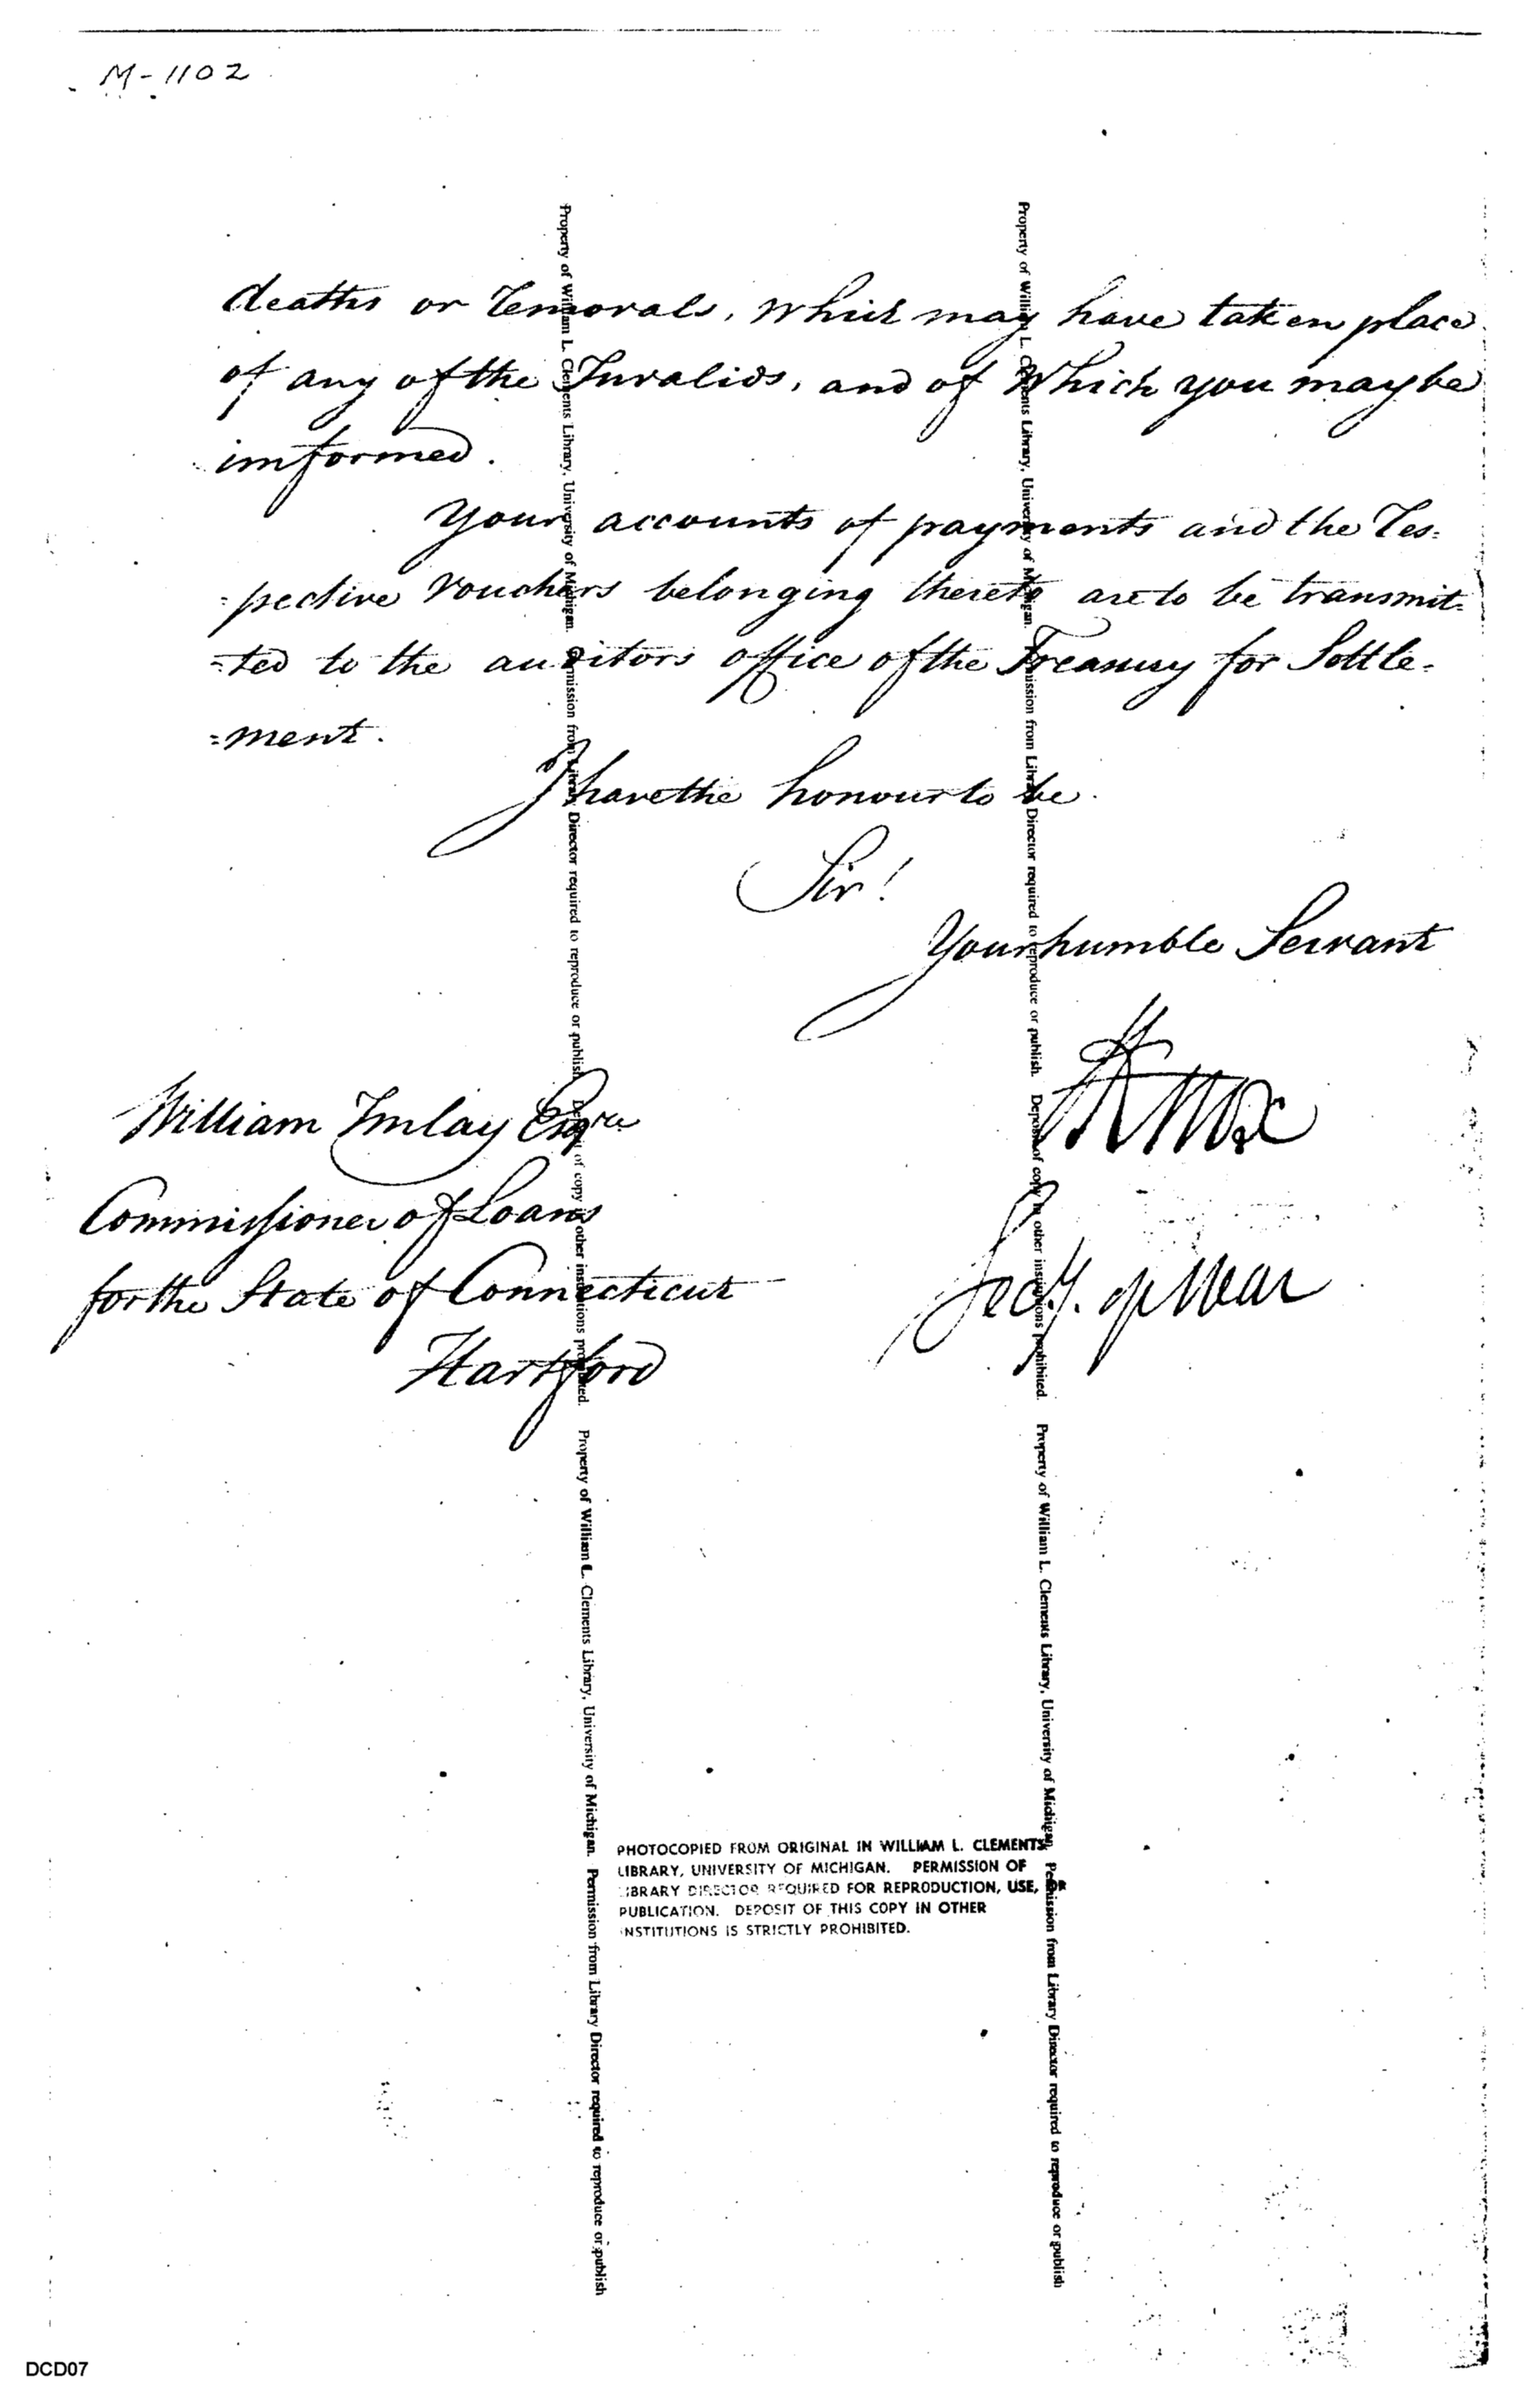 M-1102
deaths or removals, which may have taken place
of any of the Invalids, and of Which you may be
imformed.
Your accounts of payments and the res=
=pective vouchers belonging thereto are to be transmit=
=ted to the auditors office of the Treasury for Settle=
=ment.
I have the honour to be
Sir!
Your humble Servant
HKnox
Secy. of War
William Imlay Esqre
Commissioner of Loans
for the State of Connecticut
Hartford
Property of William L. Clements Library, University of Michigan. Permission from Library Director required to reproduce or publish. Deposit of copy in other institutions prohibited. Property of William L. Clements Library, University of Michigan. Permission from Library Director required to reproduce or publish
Property of William L. Clements Library, University of Michigan. Permission from Library Director required to reproduce or publish. Deposit of copy in other institutions prohibited. Property of William L. Clements Library, University of Michigan. Permission from Library Director required to reproduce or publish
PHOTOCOPIED FROM ORIGINAL IN WILLIAM L. CLEMENTS
LIBRARY, UNIVERSITY OF MICHIGAN. PERMISSION OF
LIBRARY DIRECTOR REQUIRED FOR REPRODUCTION, USE, OR
PUBLICATION. DEPOSIT OF THIS COPY IN OTHER
INSTITUTIONS IS STRICTLY PROHIBITED.
DCD07